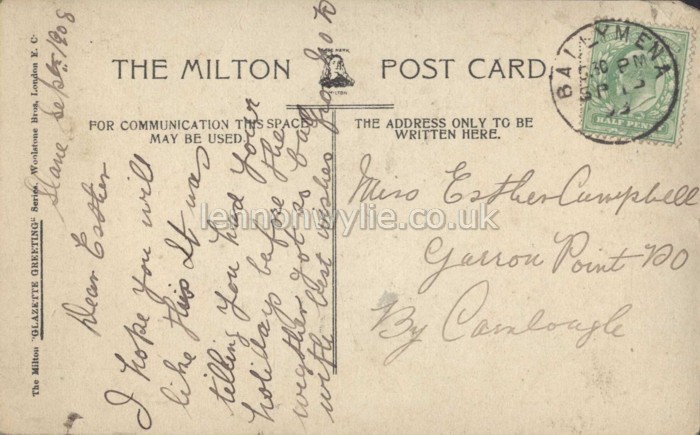 The Milton "GLAZETTE GREETING" Series. Woolstone Bros, London E. C.
THE MILTON POST CARD.
FOR COMMUNICATION THIS SPACE
MAY BE USED
THE ADDRESS ONLY TO BE
WRITTEN HERE.
BALLYMENA
PM
SP
HALF PENNY
Slane Sept 1908
Dear Esther
I hope you will
like this It was
telling you had your
holidays before the
weather got so bad
with best wishes from
Miss Esther Campbell
Garron Point PO
By Carnlough
lennonwylie.co.uk